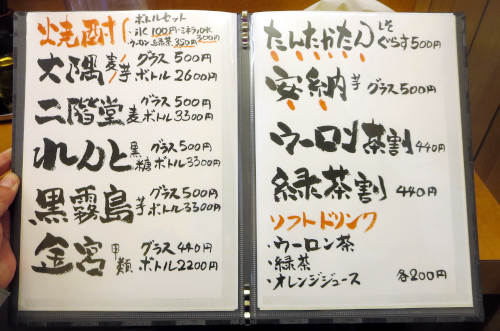 焼酎
ボトルセット
・氷100円・ミネラル水300円
ウーロン緑茶350円
大隅 麦/芋 グラス500円
ボトル2600円
二階堂 麦 グラス500円
ボトル3300円
れんと 黒糖 グラス500円
ボトル3300円
黒霧島 芋 グラス500円
ボトル3300円
金宮 甲類 グラス440円
ボトル2200円
たんたかたん しそ ぐらす500円
安納 芋 グラス500円
ウーロン茶割 440円
緑茶割 440円
ソフトドリンク
・ウーロン茶
・緑茶
・オレンジジュース 各200円